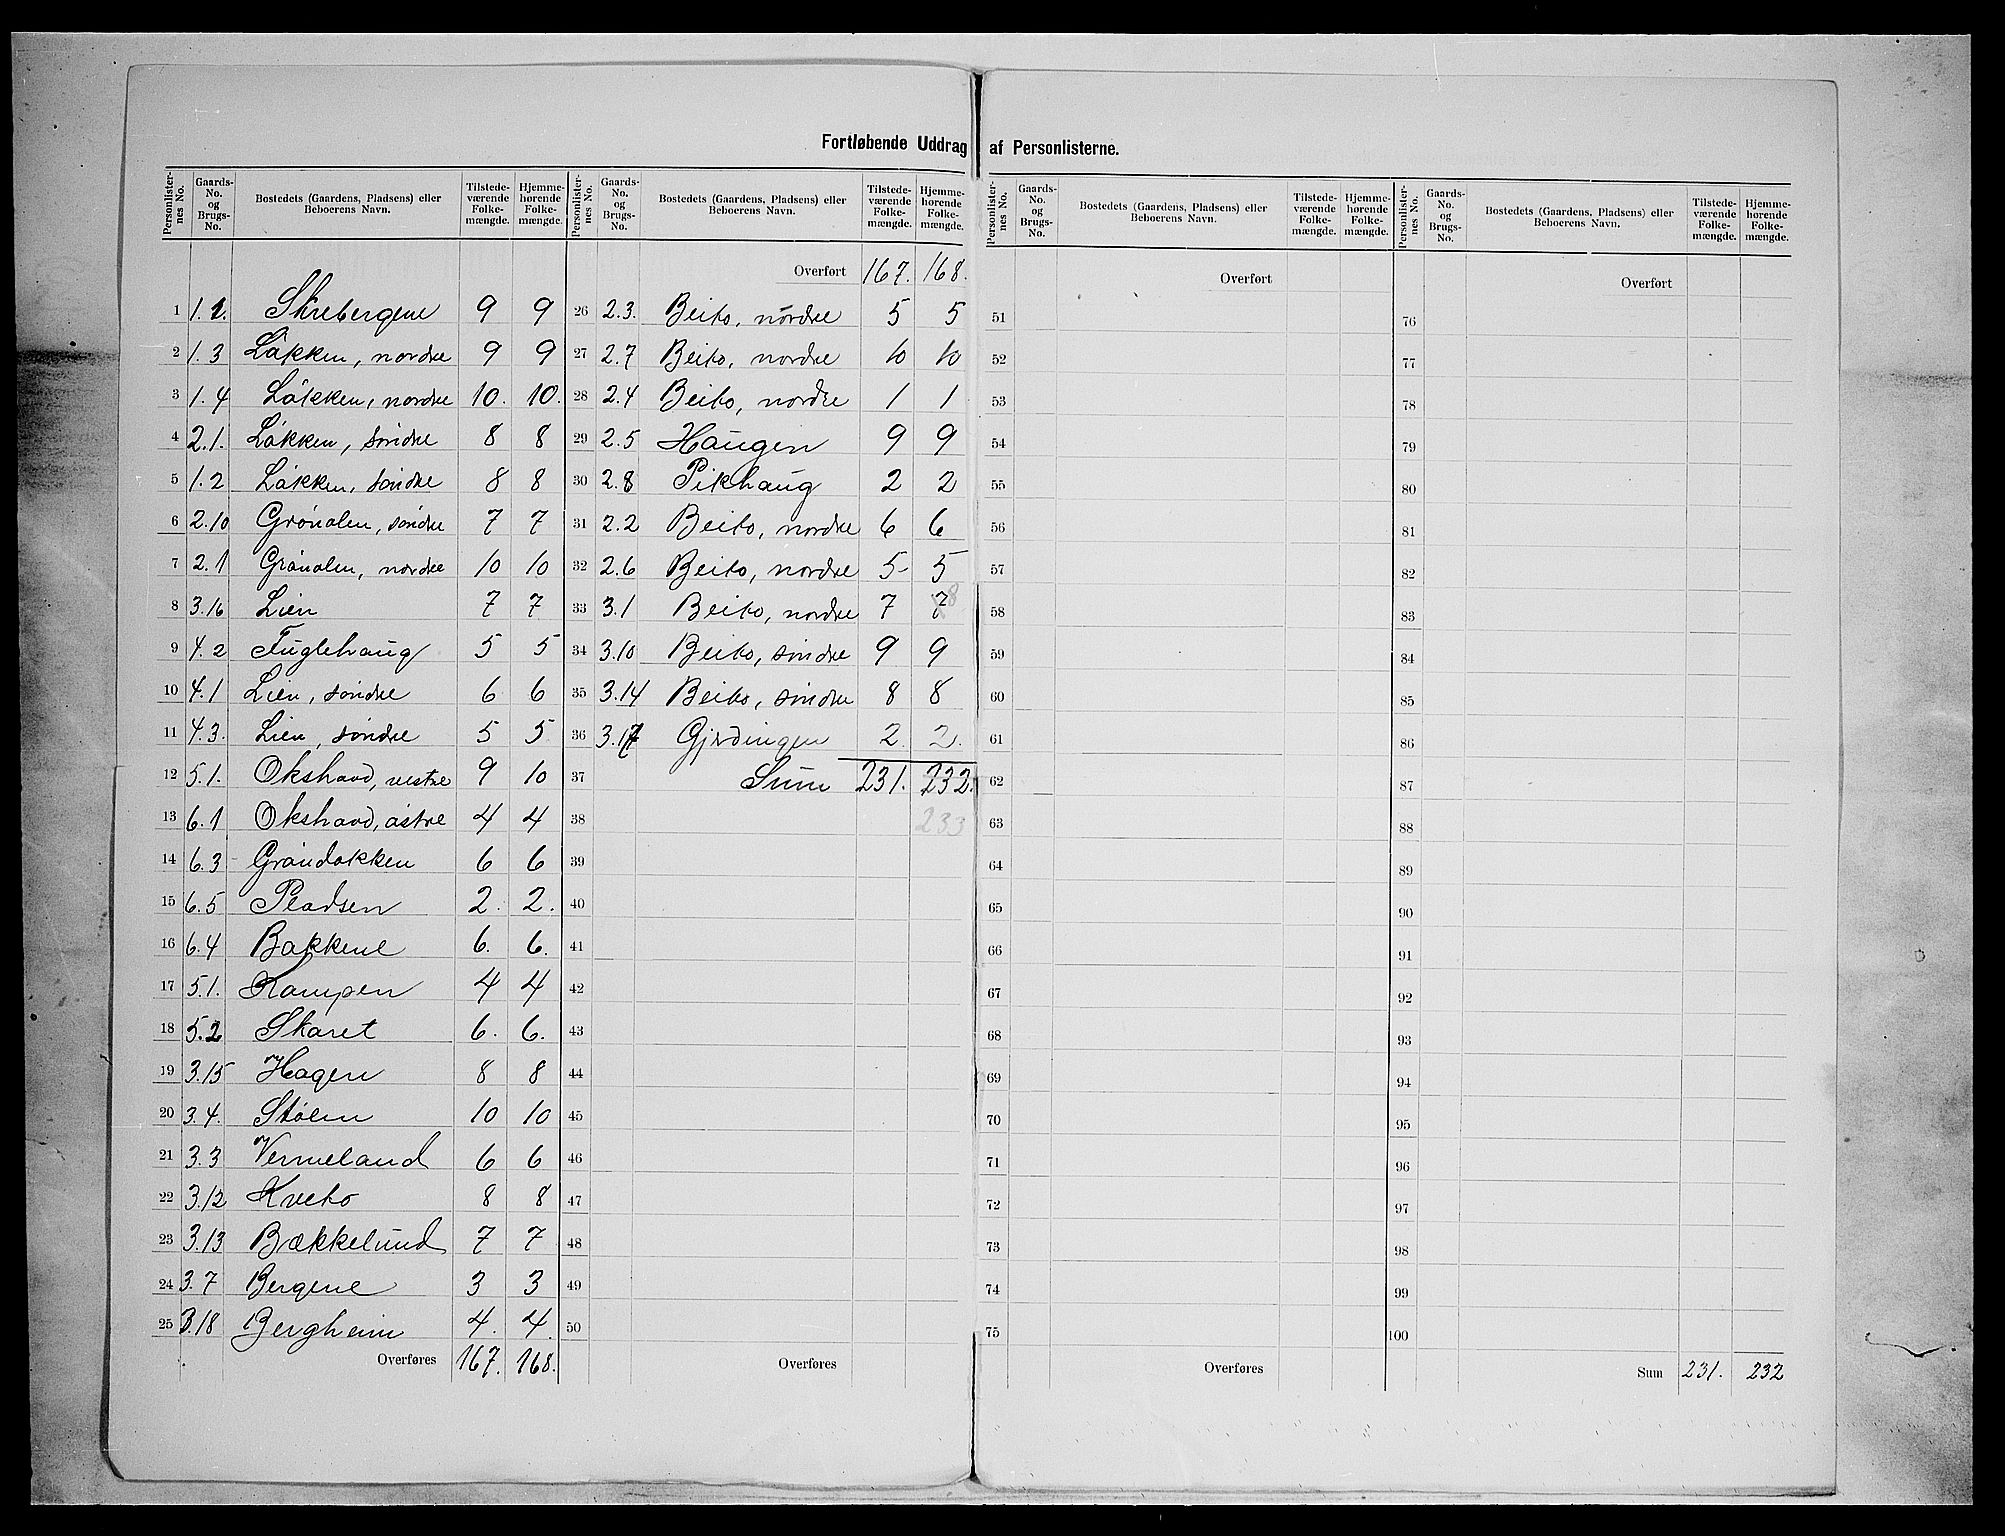 Fortløbende Uddrag af Personlisterne.
Personlister-nes No. Gaards-No. og Brugs-No. Bostedets (Gaardens, Pladsens) eller Beboerens Navn. Tilstede-værende Folke-mængde. Hjemme-hørende Folke-mængde.
1 1.1. Skrebergene 9 9
2 1.3 Løkken, nordre 9 9
3 1.4 Løkken, nordre 10. 10.
4 2.1. Løkken, søndre 8 8
5 1.2 Løkken, søndre 8 8
6 2.10 Grønolen, søndre 7 7
7 2.1 Grønolen, nordre 10 10
8 3.16 Lien 7 7
9 4.2 Fuglehaug 5 5
10 4.1 Lien, søndre 6 6
11 4.3. Lien, søndre 5 5
12 5.1. Okshovd, vestre 9 10
13 6.1 Okshovd, østre 4 4
14 6.3 Grøndokken 6 6
15 6.5 Pladsen 2. 2.
16 6.4 Bakkene 6. 6.
17 5.1. Kampen 4 4
18 5.2 Skaret 6. 6.
19 3.15 Hagen 8 8
20 3.4. Stølen 10 10
21 3.3 Vermeland 6 6
22 3.12 Kveto 8 8
23 3.13 Bækkelund 7 7
24 3.7 Bergene 3 3
25 3.18 Bergheim 4. 4.
Overføres 167. 168.
Personlister-nes No. Gaards-No. og Brugs-No. Bostedets (Gaardens, Pladsens) eller Beboerens Navn. Tilstede-værende Folke-mængde. Hjemme-hørende Folke-mængde.
Overført 167. 168.
26 2.3. Beito, nordre 5 5
27 2.7 Beito, nordre 10 10
28 2.4 Beito, nordre 1 1
29 2.5 Haugen 9 9
30 2.8 Pikhaug 2 2
31 2.2 Beito, nordre 6 6
32 2.6 Beito, nordre 5 5
33 3.1 Beito, nordre 7 7 8
34 3.10 Beito, søndre 9 9
35 3.14 Beito, søndre 8 8
36 3.17 Gjerdingen 2. 2.
37 Sum 231. 232.
38 233
39
40
41
42
43
44
45
46
47
48
49
50
Overføres
Personlister-nes No. Gaards-No. og Brugs-No. Bostedets (Gaardens, Pladsens) eller Beboerens Navn. Tilstede-værende Folke-mængde. Hjemme-hørende Folke-mængde.
Overført
51
52
53
54
55
56
57
58
59
60
61
62
63
64
65
66
67
68
69
70
71
72
73
74
75
Overføres
Personlister-nes No. Gaards-No. og Brugs-No. Bostedets (Gaardens, Pladsens) eller Beboerens Navn. Tilstede-værende Folke-mængde. Hjemme-hørende Folke-mængde.
Overført
76
77
78
79
80
81
82
83
84
85
86
87
88
89
90
91
92
93
94
95
96
97
98
99
100
Sum 231. 232